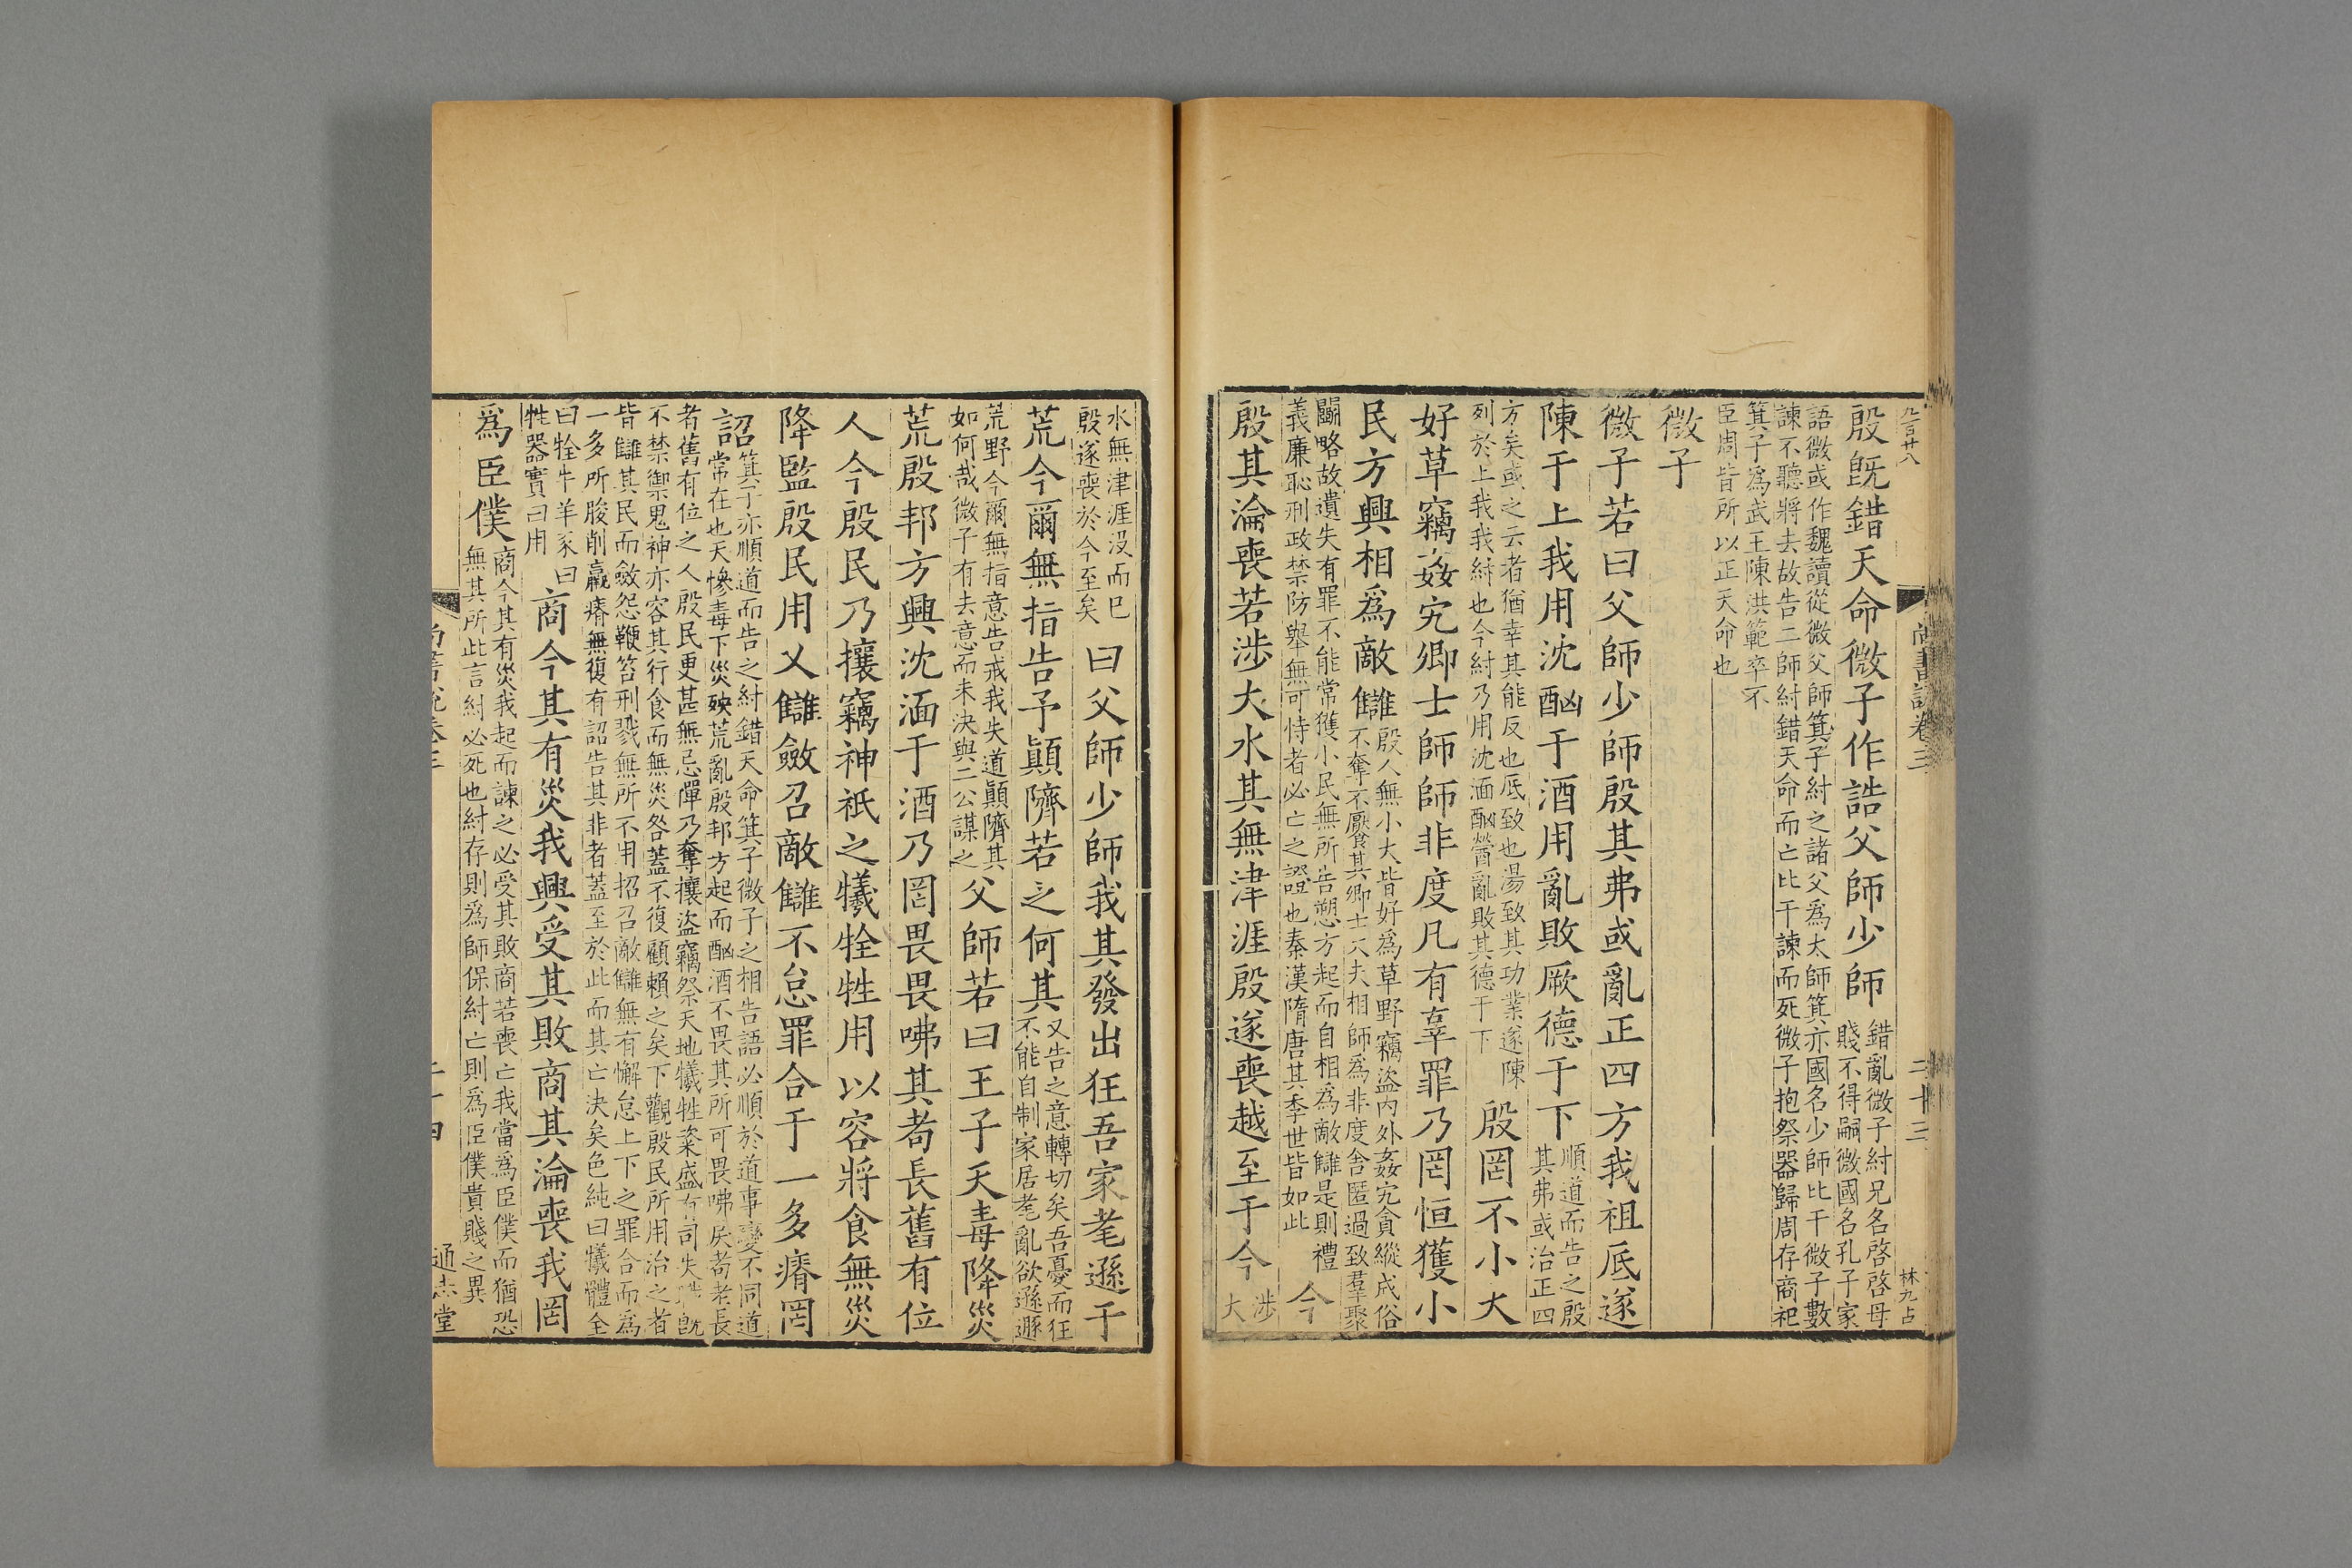 殷旣錯天命微子作誥父師少師錯亂微子紂兄名啓啓母
賤不得嗣微國名孔子家
語微或作魏讀從微父師箕子紂之諸父爲太師箕亦國名少師比干微子數
諫不聽將去故告二師紂錯天命而亡比干諫而死微子抱祭器歸周存商祀
箕子爲武王陳洪範卒不
臣周皆所以正天命也
微子
微子若曰父師少師殷其弗或亂正四方我祖厎遂
陳于上我用沈酗于酒用亂敗厥德于下順道而告之殷
其弗或治正四
方矣或之云者猶幸其能反也厎致也湯致其功業遂陳
列於上我我紂也今紂乃用沈湎酗醟亂敗其德于下
殷罔不小大
好草竊姦宄卿士師師非度凡有辜罪乃罔恒獲小
民方興相爲敵讎殷人無小大皆好爲草野竊盜內外姦宄貪縱成俗
不奪不厭食其卿士大夫相師爲非度舍匿過致羣聚
鬬略故遺失有罪不能常獲小民無所告愬方起而自相爲敵讎是則禮
義廉恥刑政禁防舉無可恃者必亡之證也秦漢隋唐其季世皆如此
今
殷其淪喪若涉大水其無津涯殷遂喪越至于今涉
大
水無津涯没而已
殷遂喪於今至矣
曰父師少師我其發出狂吾家耄遜于
荒今爾無指告予顚隮若之何其又告之意轉切矣吾憂而狂
不能自制家居耄亂欲遜遯
荒野今爾無指意告戒我失道顚隮其
如何哉微子有去意而未決與二公謀之
父師若曰王子天毒降災
荒殷邦方興沈湎于酒乃罔畏畏咈其耇長舊有位
人今殷民乃攘竊神祇之犧牷牲用以容將食無災
降監殷民用乂讎斂召敵讎不怠罪合于一多瘠罔
詔箕子亦順道而告之紂錯天命箕子微子之相告語必順於道事變不同道
常在也天慘毒下災殃荒亂殷邦方起而酗酒不畏其所可畏咈戾耇老長
者舊有位之人殷民更甚無忌憚乃奪攘盜竊祭天地犧牲粢盛有司失旣
不禁御鬼神亦容其行食而無災咎蓋不復顧賴之矣下觀殷民所用治之者
皆讎其民而斂怨鞭笞刑戮無所不用招召敵讎無有懈怠上下之罪合而爲
一多所朘削羸瘠無復有詔告其非者蓋至於此而其亡決矣色純曰犧體全
曰牷牛羊豕曰
牲器實曰用
商今其有災我興受其敗商其淪喪我罔
爲臣僕商今其有災我起而諫之必受其敗商若喪亡我當爲臣僕而猶恐
無其所此言紂必死也紂存則爲師保紂亡則爲臣僕貴賤之異
通志堂